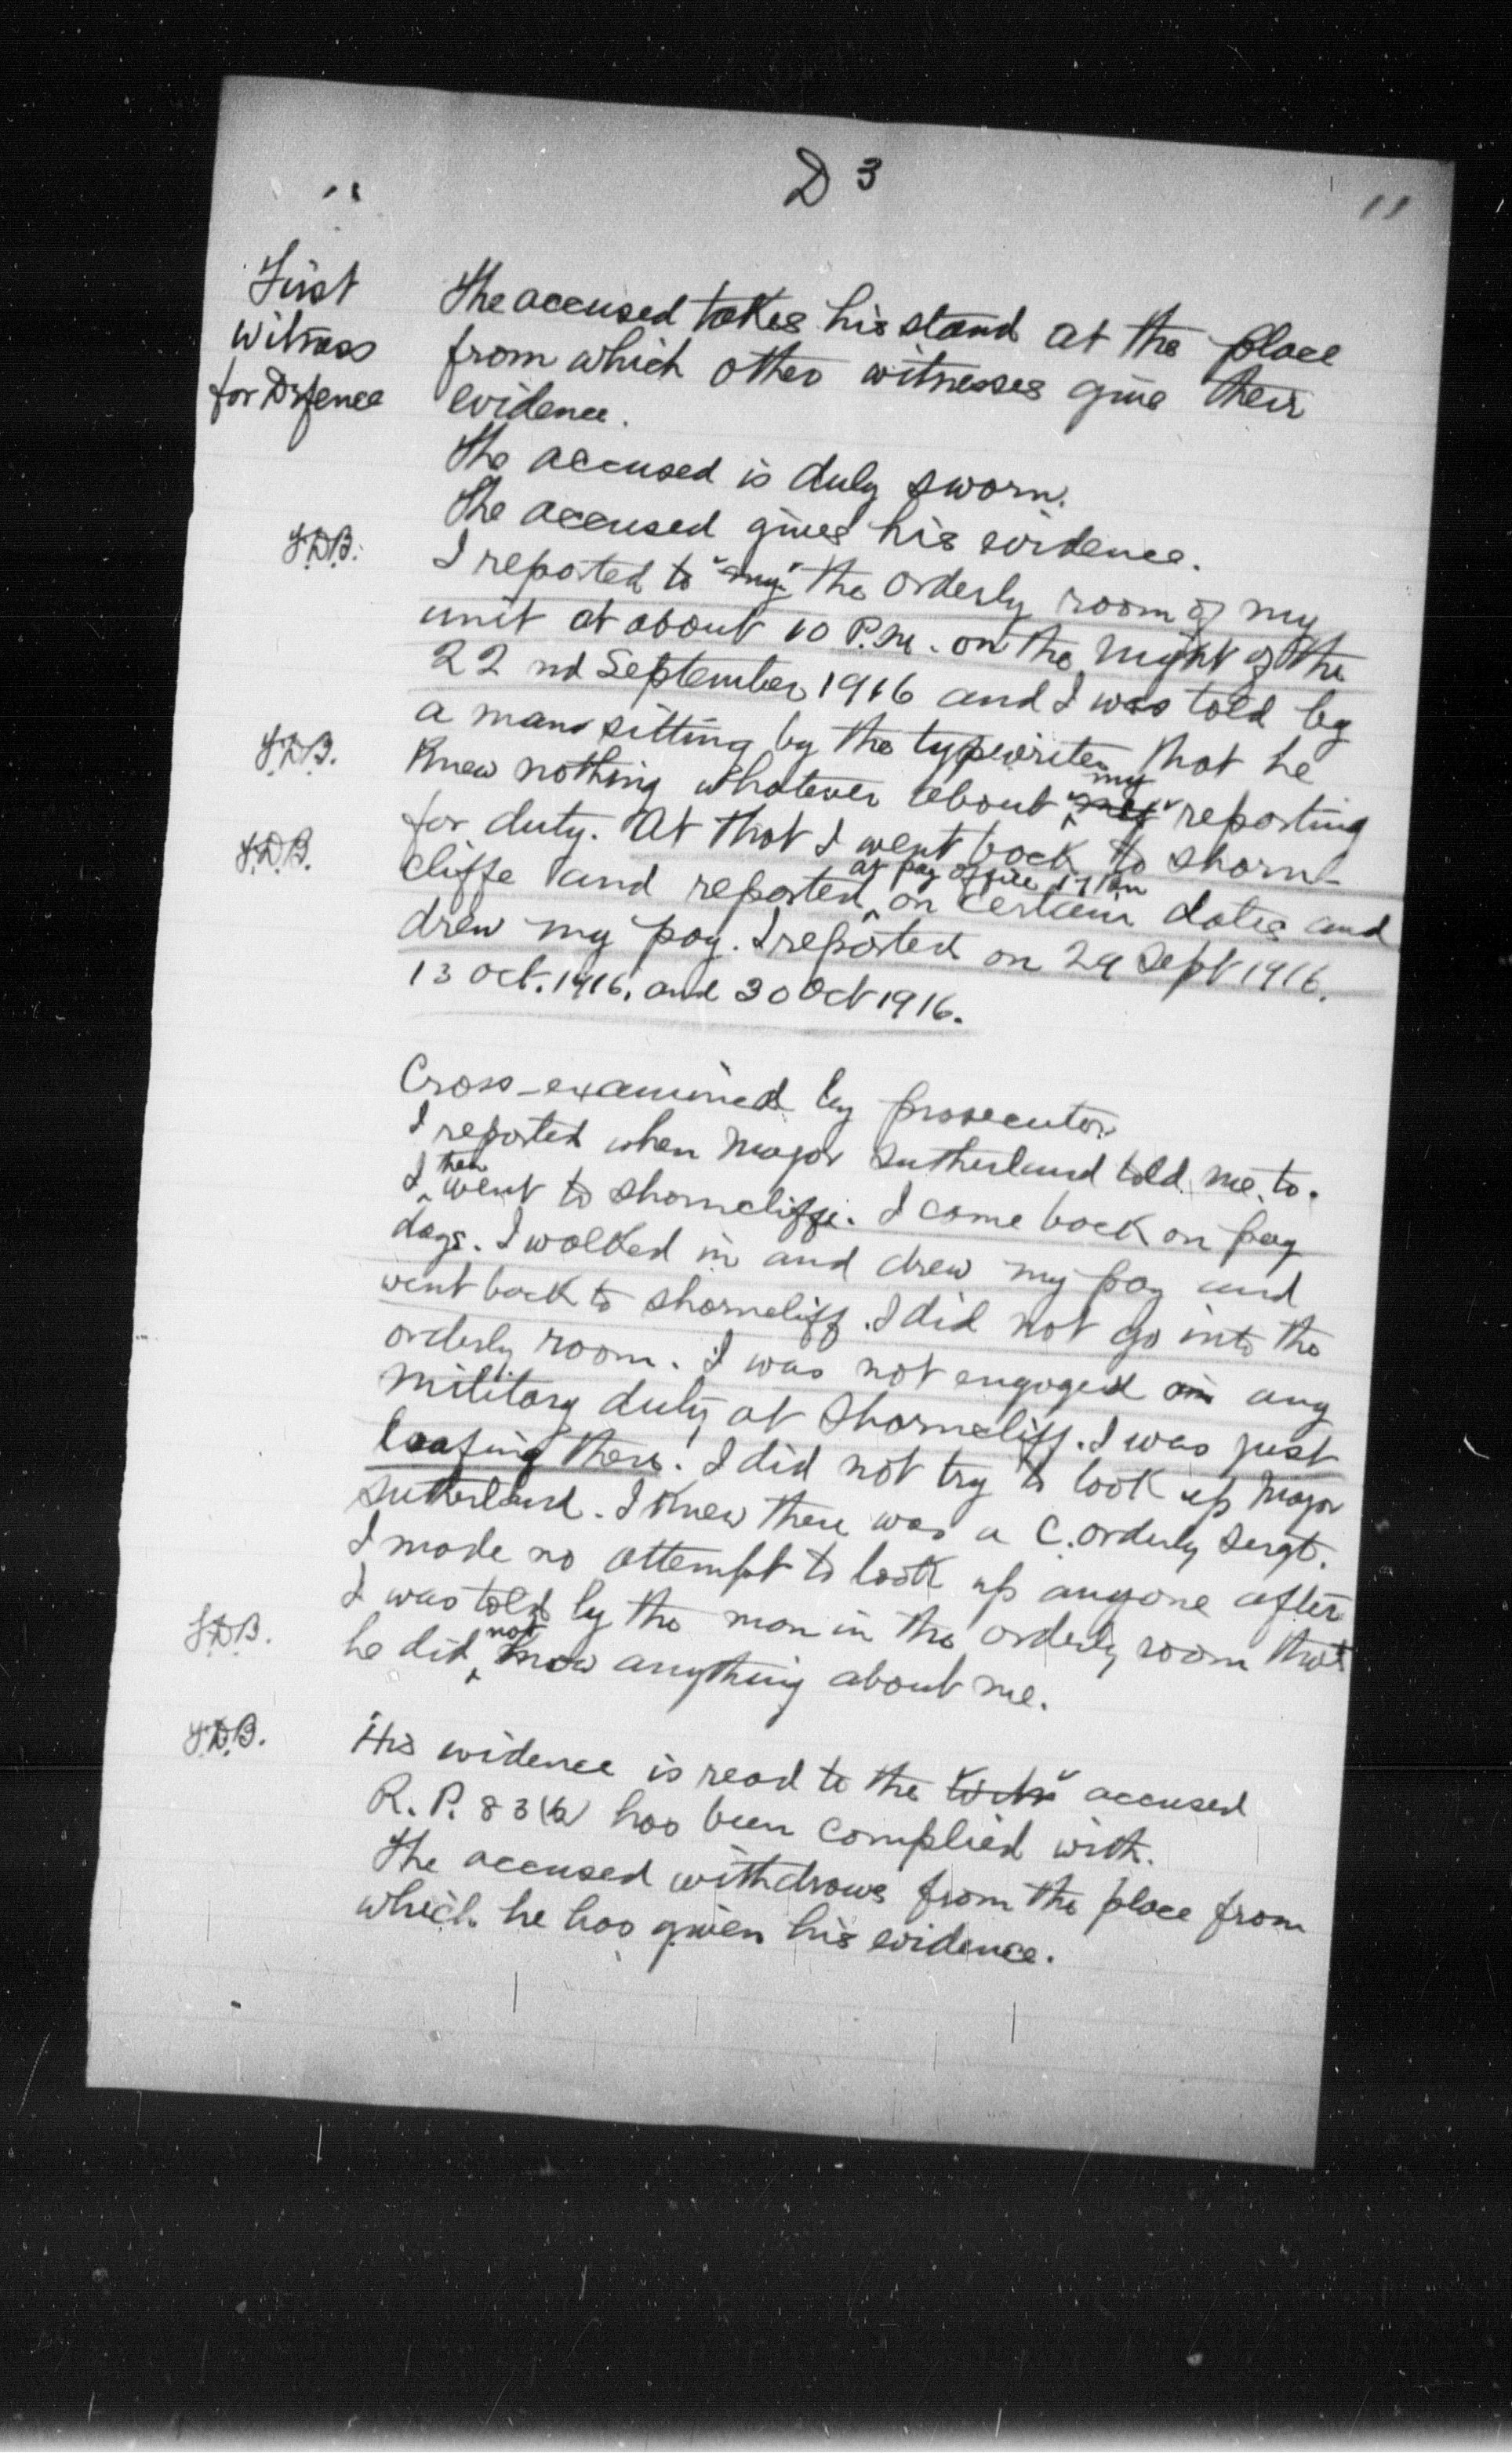 D 3
11
First
Witness
for Defence
The accused takes his stand at the place
from which other witnesses give their
evidence.
The accused is duly sworn.
The accused gives his evidence.
J.D.B.
I reported to "my" the orderly room of my
unit at about 10 P.M. on the night of the
22nd September 1916 and I was told by
a man sitting by the typewriter that he
J.D.B.
knew nothing whatever about "me" my reporting
for duty. At that I went back to Shorn-
J.D.B.
cliffe and reported at pay office on certain dates and
drew my pay. I reported on 29 Sept 1916.
13 Oct. 1916. and 30 Oct 1916.
Cross-examined by prosecutor
I reported when Major Sutherland told me to.
I then went to Shorncliffe. I came back on pay
days. I walked in and drew my pay and
went back to Shorncliff. I did not go into the
orderly room. I was not engaged on any
military duty at Shorncliff. I was just
loafing there. I did not try to look up Major
Sutherland. I knew there was a C. orderly Sergt.
I made no attempt to look up anyone after
I was told by the man in the orderly room that
J.D.B.
he did not know anything about me.
J.D.B.
His evidence is read to the "witn" accused
R.P. 83 (b) has been complied with.
The accused withdraws from the place from
which he has given his evidence.